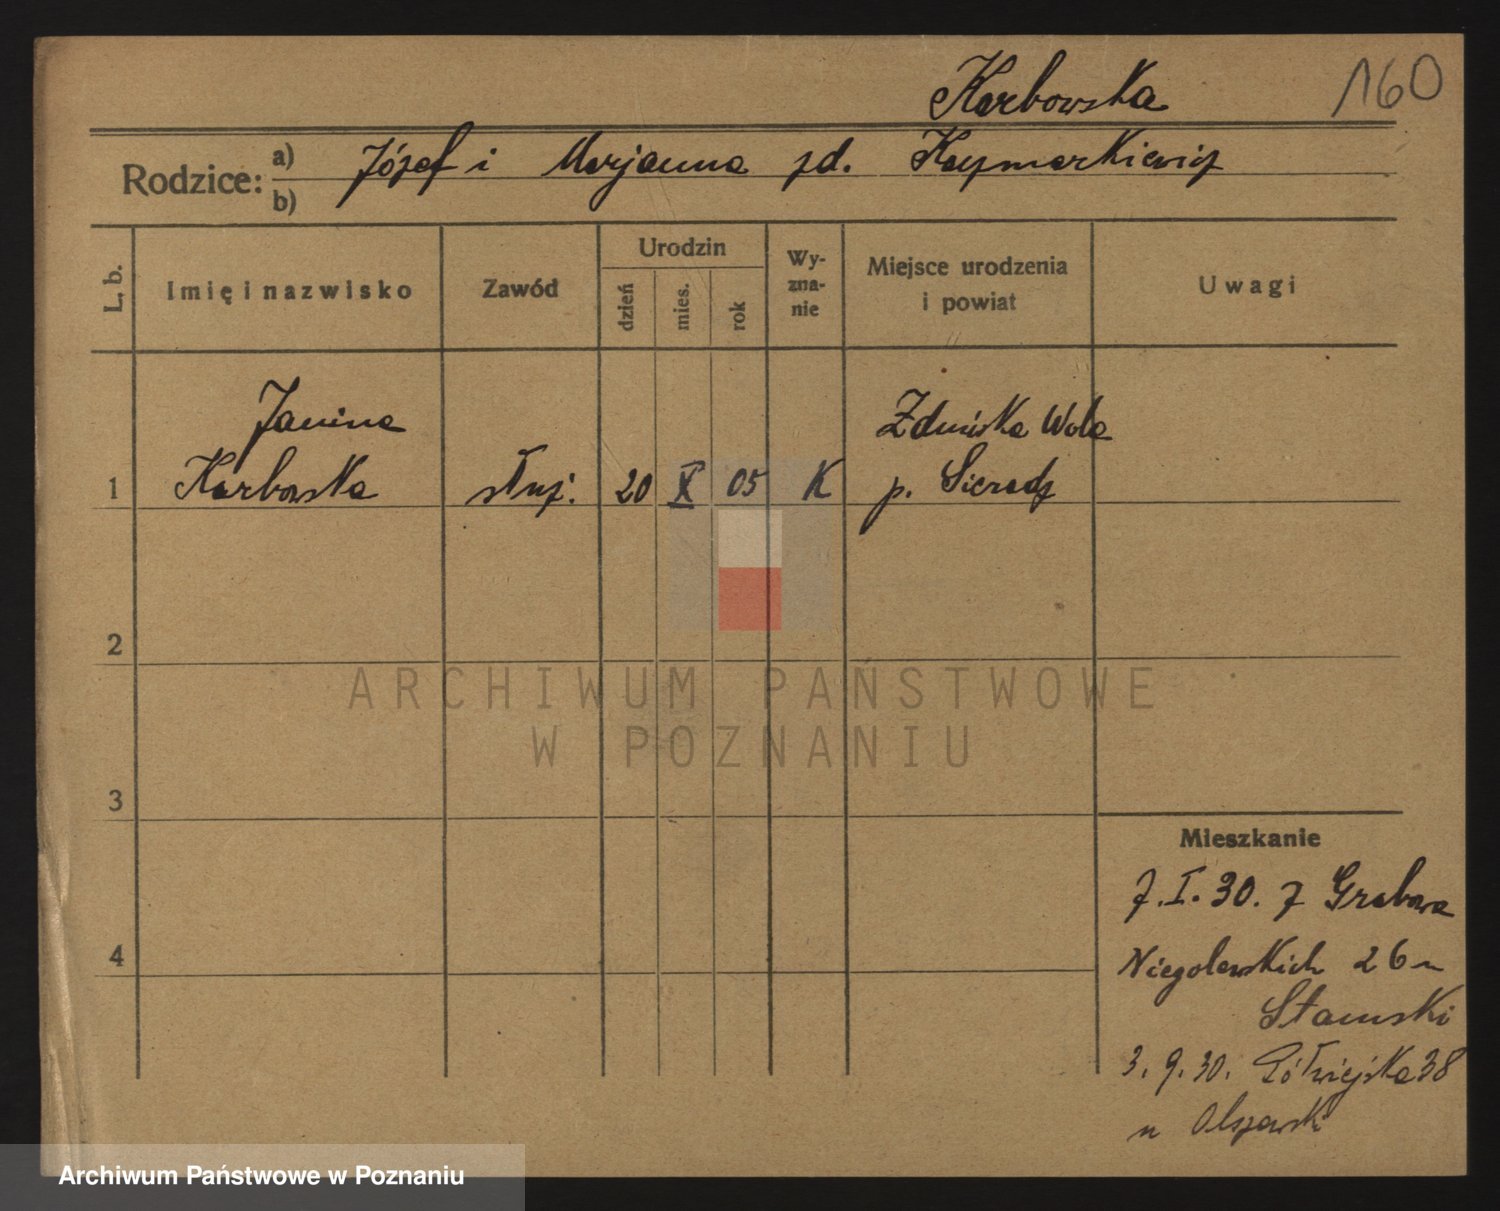 Karbowska
160
Rodzice: a) Józef i Marjanna zd. Kaczmarkiewicz
b)
L. b.
Imię i nazwisko
Zawód
Urodzin
dzień
mies.
rok
Wy-
zna-
nie
Miejsce urodzenia
i powiat
Uwagi
Janina
Zduńska Wola
1 Karbowska służ. 20 X 05 K p. Sieradz
2
ARCHIWUM PAŃSTWOWE
W POZNANIU
3
Mieszkanie
7.I.30. z Grabowa
4
Niegolewskich 26 u
Stamski
3.9.30. Półwiejska 38
u Olszewski
Archiwum Państwowe w Poznaniu